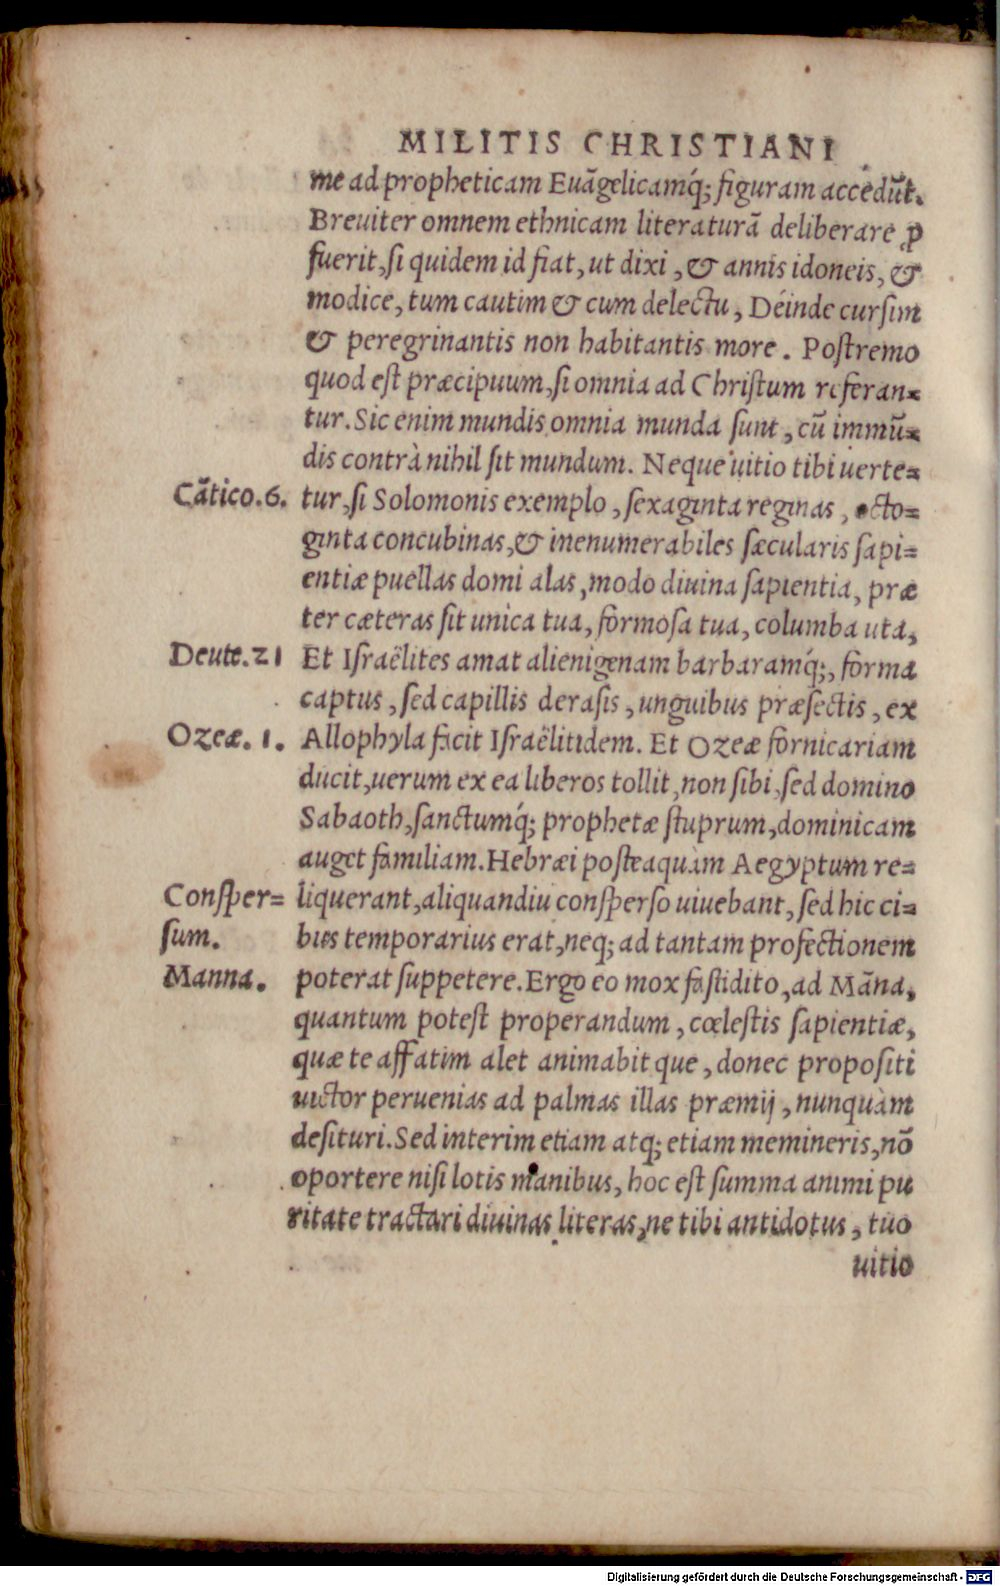 MILITIS CHRISTIANI
me ad propheticam Euãgelicamq́; figuram accedũt.
Breuiter omnem ethnicam literaturã deliberare ꝓ
fuerit, si quidem id fiat, ut dixi, & annis idoneis, &
modice, tum cautim & cum delectu, Déinde cursim
& peregrinantis non habitantis more. Postremo
quod est præcipuum, si omnia ad Christum referan=
tur. Sic enim mundis omnia munda sunt, cũ immũ=
dis contrà nihil sit mundum. Neque uitio tibi uerte=
Cãtico. 6. tur, si Solomonis exemplo, sexaginta reginas, octo=
ginta concubinas, & inenumerabiles sæcularis sapi=
entiæ puellas domi alas, modo diuina sapientia, præ
ter cæteras sit unica tua, formosa tua, columba uta,
Deute. 21 Et Israëlites amat alienigenam barbaramq́;, forma
captus, sed capillis derasis, unguibus præsectis, ex
Ozeæ. 1. Allophyla facit Israëlitidem. Et Ozeæ fornicariam
ducit, uerum ex ea liberos tollit, non sibi, sed domino
Sabaoth, sanctumq́; prophetæ stuprum, dominicam
auget familiam. Hebræi posteaquàm Aegyptum re=
Consper= liquerant, aliquandiu consperso uiuebant, sed hic ci=
sum. bus temporarius erat, neq; ad tantam profectionem
Manna. poterat suppetere. Ergo eo mox fastidito, ad Mãna,
quantum potest properandum, cœlestis sapientiæ,
quæ te affatim alet animabit que, donec propositi
uictor peruenias ad palmas illas præmij, nunquàm
desituri. Sed interim etiam atq; etiam memineris, nõ
oportere nisi lotis manibus, hoc est summa animi pu
ritate tractari diuinas literas, ne tibi antidotus, tuo
uitio
Digitalisierung gefördert durch die Deutsche Forschungsgemeinschaft - DFG